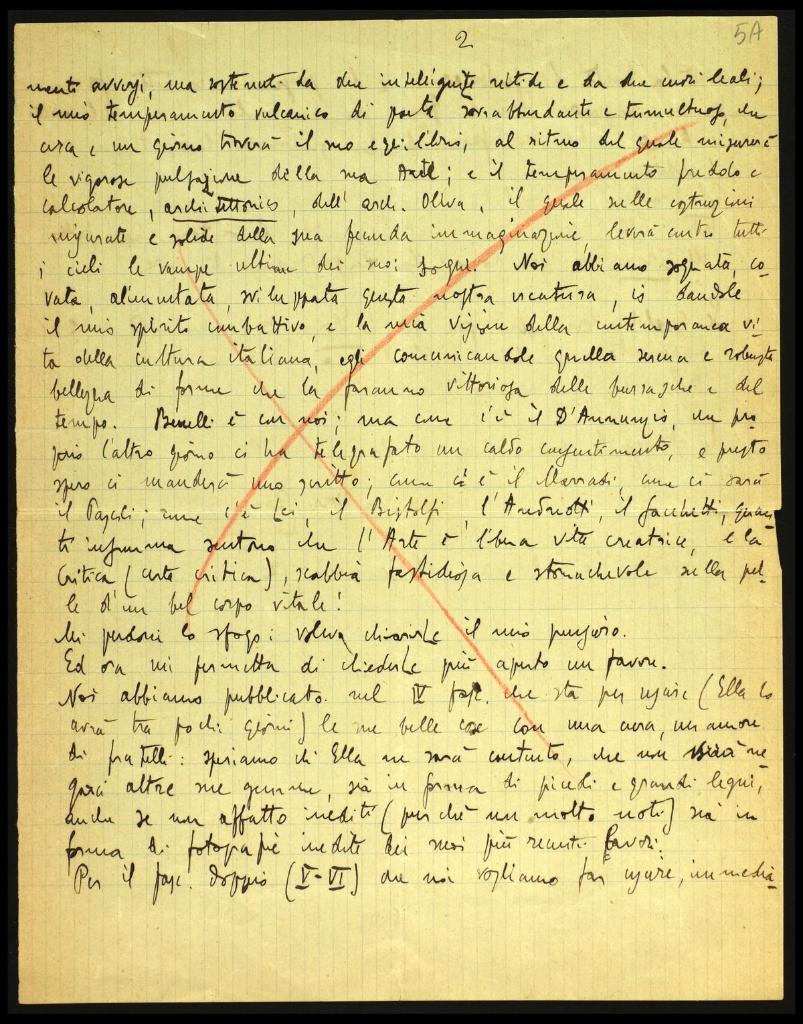 2
5A
mente avversi, ma sostenuti da due intelligenze nitide e da due cuori leali;
il mio temperamento vulcanico di poeta sovrabbondante e tumultuoso, che
cerca e un giorno troverà il suo equilibrio, al ritmo del quale misurerà
le vigorose pulsazioni della sua Arte; e il temperamento freddo e
calcolatore, architettonico, dell'arch. Oliva, il quale nelle costruzioni
misurate e solide della sua feconda immaginazione, leverà contro tutti
i cieli le vampe ultime dei suoi sogni. Noi abbiamo sognata, co-
vata, alimentata, sviluppata questa nostra creatura, io dandole
il mio spirito combattivo, e la mia visione della contemporanea vi-
ta della cultura italiana, egli comunicandole quella serena e robusta
bellezza di forme che la faranno vittoriosa delle burrasche e del
tempo. Benelli è con noi; ma come c'è il D'Annunzio, che pro-
prio l'altro giorno ci ha telegrafato un caldo consentimento, e presto
spero ci manderà uno scritto; come ci è il Marradi, come ci sarà
il Pascoli; come c'è Lei, il Bistolfi, l'Andreotti, il Sacchetti, quan-
ti insomma sentono che l'Arte è libera vita creatrice, e la
Critica (certa critica), scabbia fastidiosa e stomachevole sulla pel-
le d'un bel corpo vitale!
Mi perdoni lo sfogo: voleva chiarirle il mio pensiero.
Ed ora mi permetta di chiederle più aperto un favore.
Noi abbiamo pubblicato nel IV fasc. che sta per uscire (Ella lo
avrà tra pochi giorni) le sue belle cose con una cura, un amore
di fratelli: speriamo che Ella ne sarà contento, che non ne-
gherà altre sue gemme, sia in forma di piccoli e grandi legni,
anche se non affatto inediti (purchè non molto noti) sia in
forma di fotografie inedite dei suoi più recenti lavori.
Per il fasc. doppio (V-VI) che noi vogliamo far uscire, immedia-